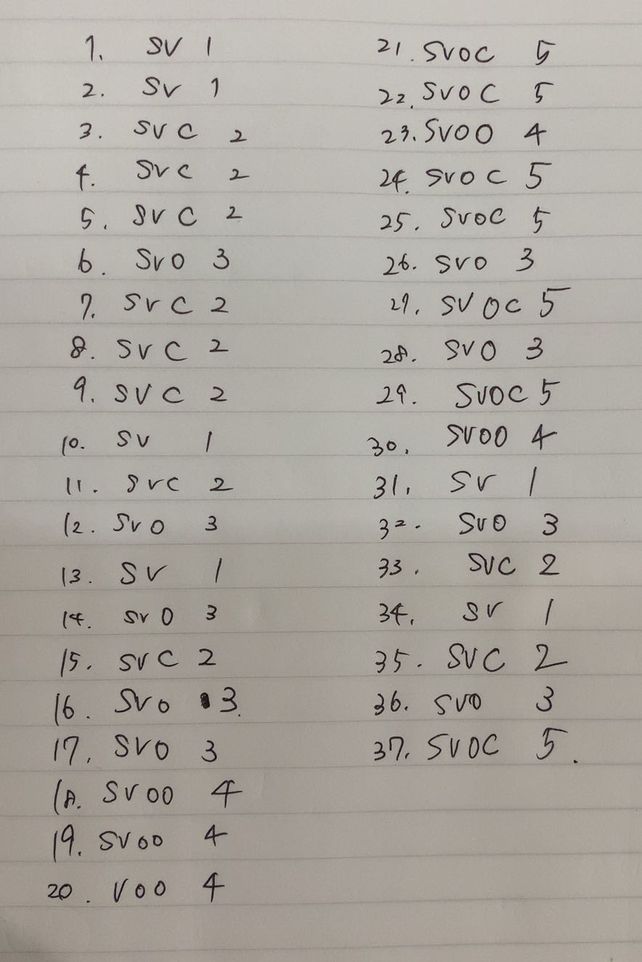 1. SV 1
2. SV 1
3. SVC 2
4. SVC 2
5. SVC 2
6. SVO 3
7. SVC 2
8. SVC 2
9. SVC 2
10. SV 1
11. SVC 2
12. SVO 3
13. SV 1
14. SVO 3
15. SVC 2
16. SVO 3.
17. SVO 3
18. SVOO 4
19. SVOO 4
20. VOO 4
21. SVOC 5
22. SVOC 5
23. SVOO 4
24. SVOC 5
25. SVOC 5
26. SVO 3
27. SVOC 5
28. SVO 3
29. SVOC 5
30. SVOO 4
31. SV 1
32. SVO 3
33. SVC 2
34. SV 1
35. SVC 2
36. SVO 3
37. SVOC 5.